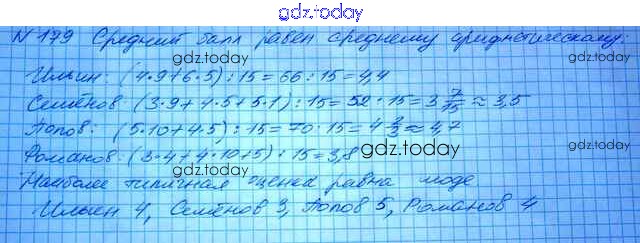 gdz.today
№179 Средний балл равен среднему арифметическому:
gdz.today
Ильин: (4·9+6·5):15=66:15=4,4
Семёнов: (3·9+4·5+5·1):15=52:15=3 7/15≈3,5
Попов: (5·10+4·5):15=70:15=4 2/3≈4,7
gdz.today
Романов: (3·4+4·10+5):15=3,8
gdz.today
Наиболее типичная оценка равна моде
Ильин 4, Семёнов 3, Попов 5, Романов 4
gdz.today